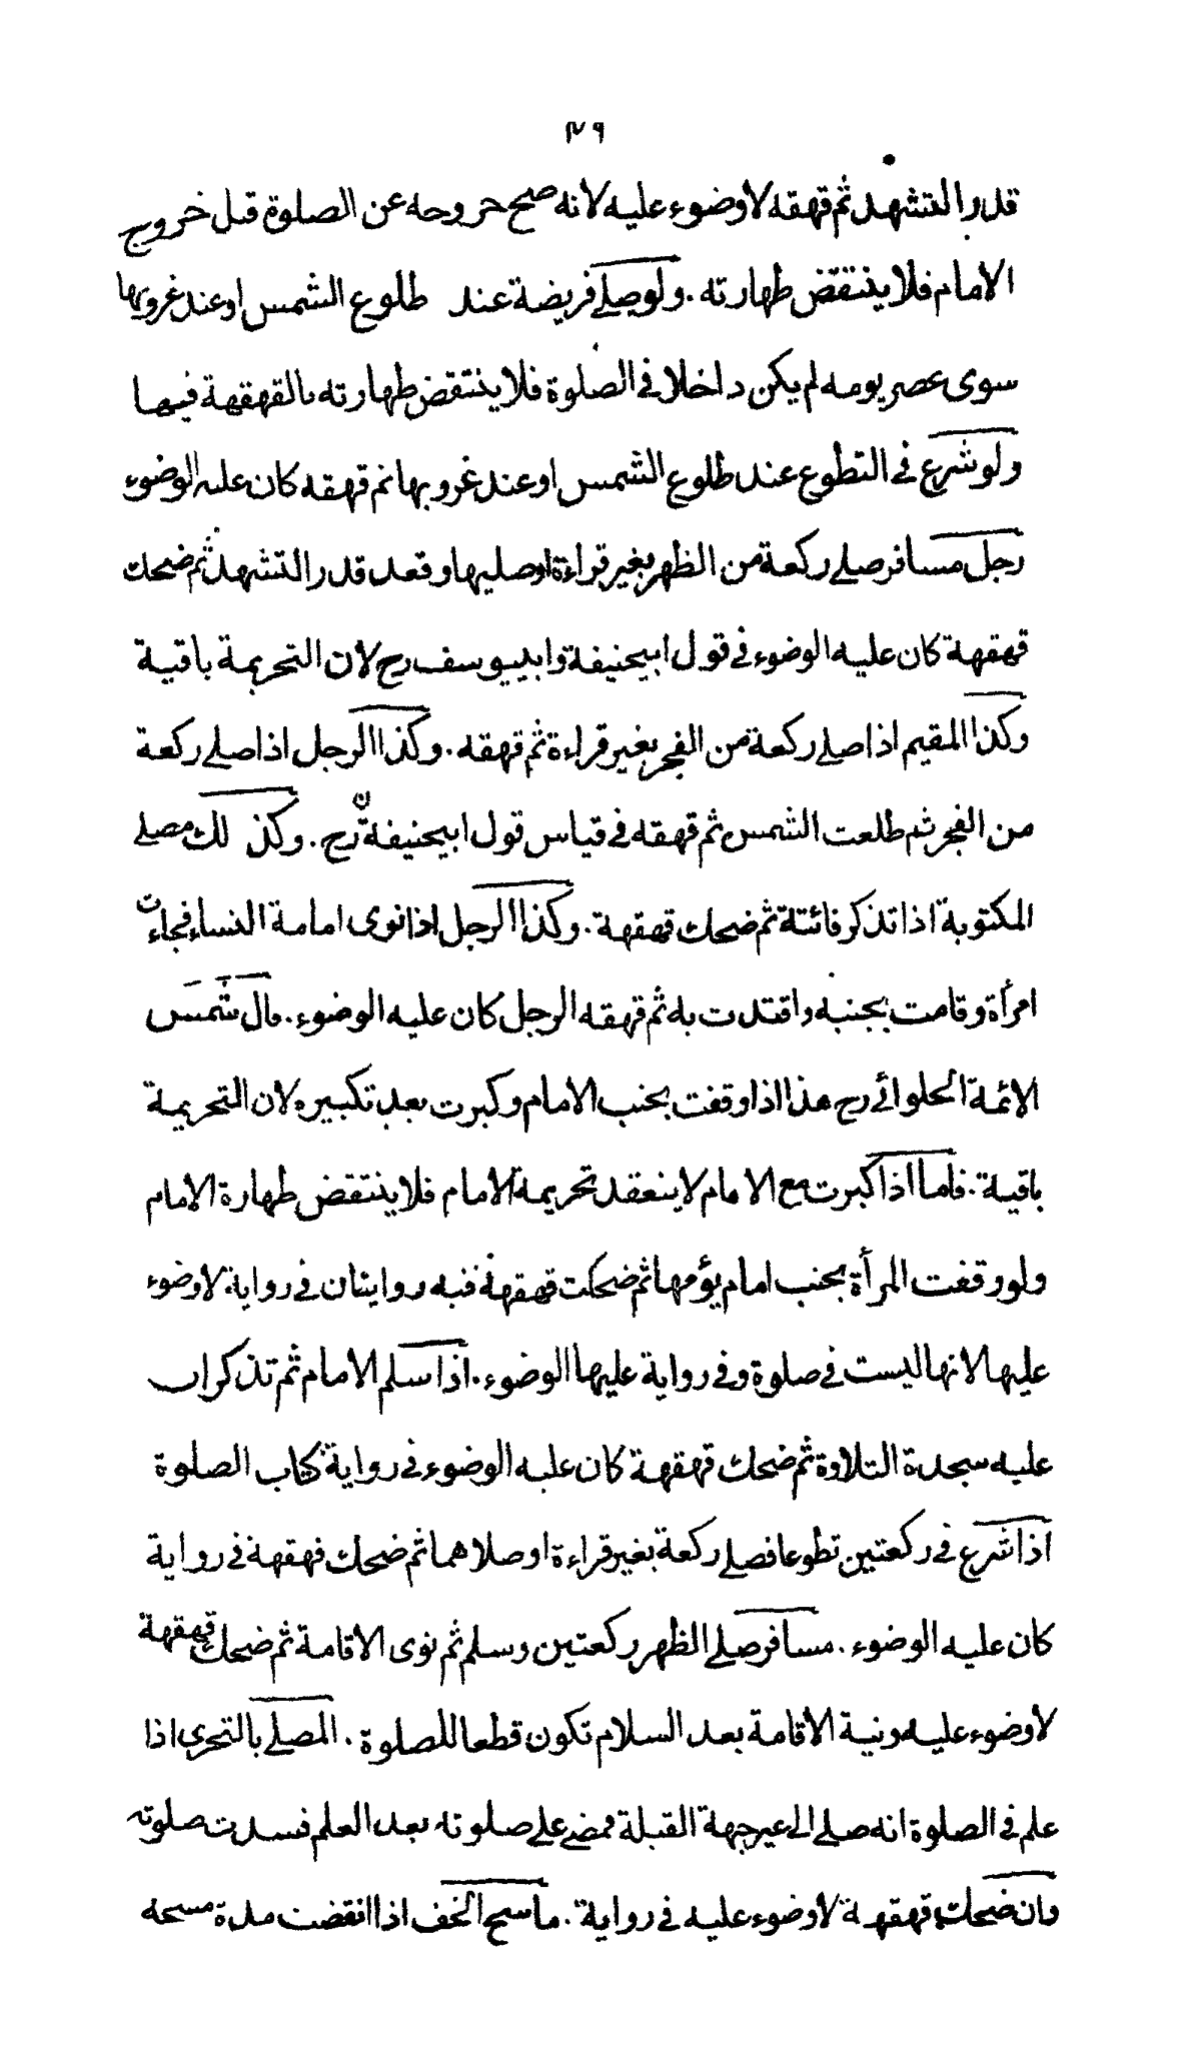 ٧٩
قدر التشهد ثم قهقه لا وضوء عليه لانه صح خروجه عن الصلوة قبل خروج
الامام فلا ينتقض طهارته . ولو صلى فريضة عند طلوع الشمس او عند غروبها
سوى عصر يومه لم يكن داخلا في الصلوة فلا ينتقض طهارته بالقهقهة فيها
ولو شرع في التطوع عند طلوع الشمس او عند غروبها ثم قهقه كان عليه الوضوء
رجل مسافر صلى ركعة من الظهر بغير قراءة او صليها وقعد قدر التشهد ثم ضحك
قهقهة كان عليه الوضوء في قول ابيحنيفة وابييوسف رح لان التحريمة باقية
وكذا المقيم اذا صلى ركعة من الفجر بغير قراءة ثم قهقه . وكذا الرجل اذا صلى ركعة
من الفجر ثم طلعت الشمس ثم قهقه في قياس قول ابيحنيفة رح . وكذلك مصلى
المكتوبة اذا تذكر فائتة ثم ضحك قهقهة . وكذا الرجل اذا نوى امامة النساء فجاءت
امرأة وقامت بجنبه واقتدت به ثم قهقه الرجل كان عليه الوضوء . قال شمس
الائمة الحلوائي رح هذا اذا وقفت بجنب الامام وكبرت بعد تكبيره لان التحريمة
باقية . فاما اذا كبرت مع الامام لا ينعقد تحريمة الامام فلا ينتقض طهارة الامام
ولو وقفت المرأة بجنب امام يؤمها ثم ضحكت قهقهة فنيه روايتان في رواية لا وضوء
عليها لانها ليست في صلوة وفي رواية عليها الوضوء . اذا سلم الامام ثم تذكر ان
عليه سجدة التلاوة ثم ضحك قهقهة كان عليه الوضوء في رواية كتاب الصلوة
اذا شرع في ركعتين تطوعا فصلى ركعة بغير قراءة او صلاهما ثم ضحك قهقهة في رواية
كان عليه الوضوء . مسافر صلى الظهر ركعتين وسلم ثم نوى الاقامة ثم ضحك قهقهة
لا وضوء عليه ونية الاقامة بعد السلام تكون قطعا للصلوة . المصلى بالتحري اذا
علم في الصلوة انه صلى الى غير جهة القبلة فمضى على صلوته بعد العلم فسدت صلوته
وان ضحك قهقهة لا وضوء عليه في رواية . ماسح الخف اذا انقضت مدة مسحه